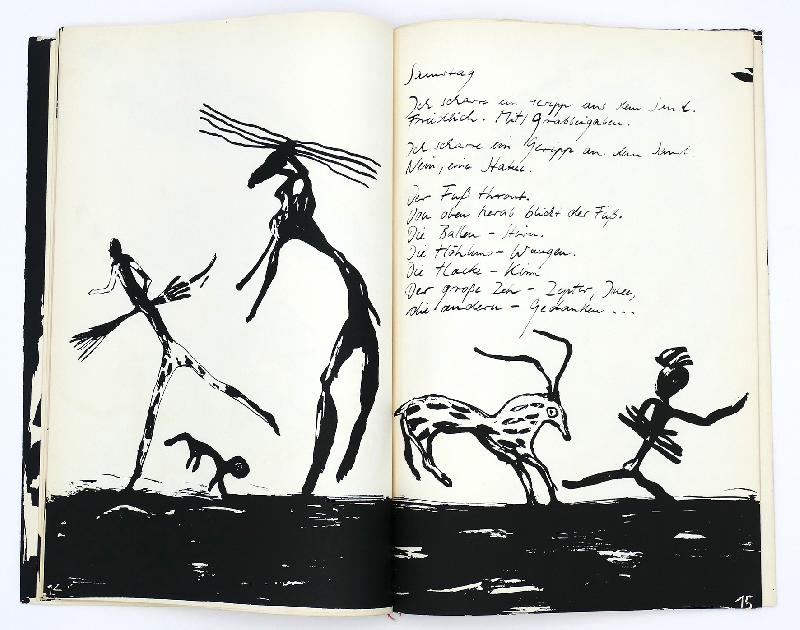 Samstag
Ich scharre ein Geripp aus dem Sand.
Friedlich. Mit Grabbeigaben.
Ich scharre ein Geripp aus dem Sand.
Nein, eine
Der Fuß thront.
Von oben herab blickt der Fuß.
Die Ballen – Stirn.
Die Höhlung – Wangen.
Die Hacke – Kinn
Der große Zeh – Zepter,
die andern – Gedanken ...
15